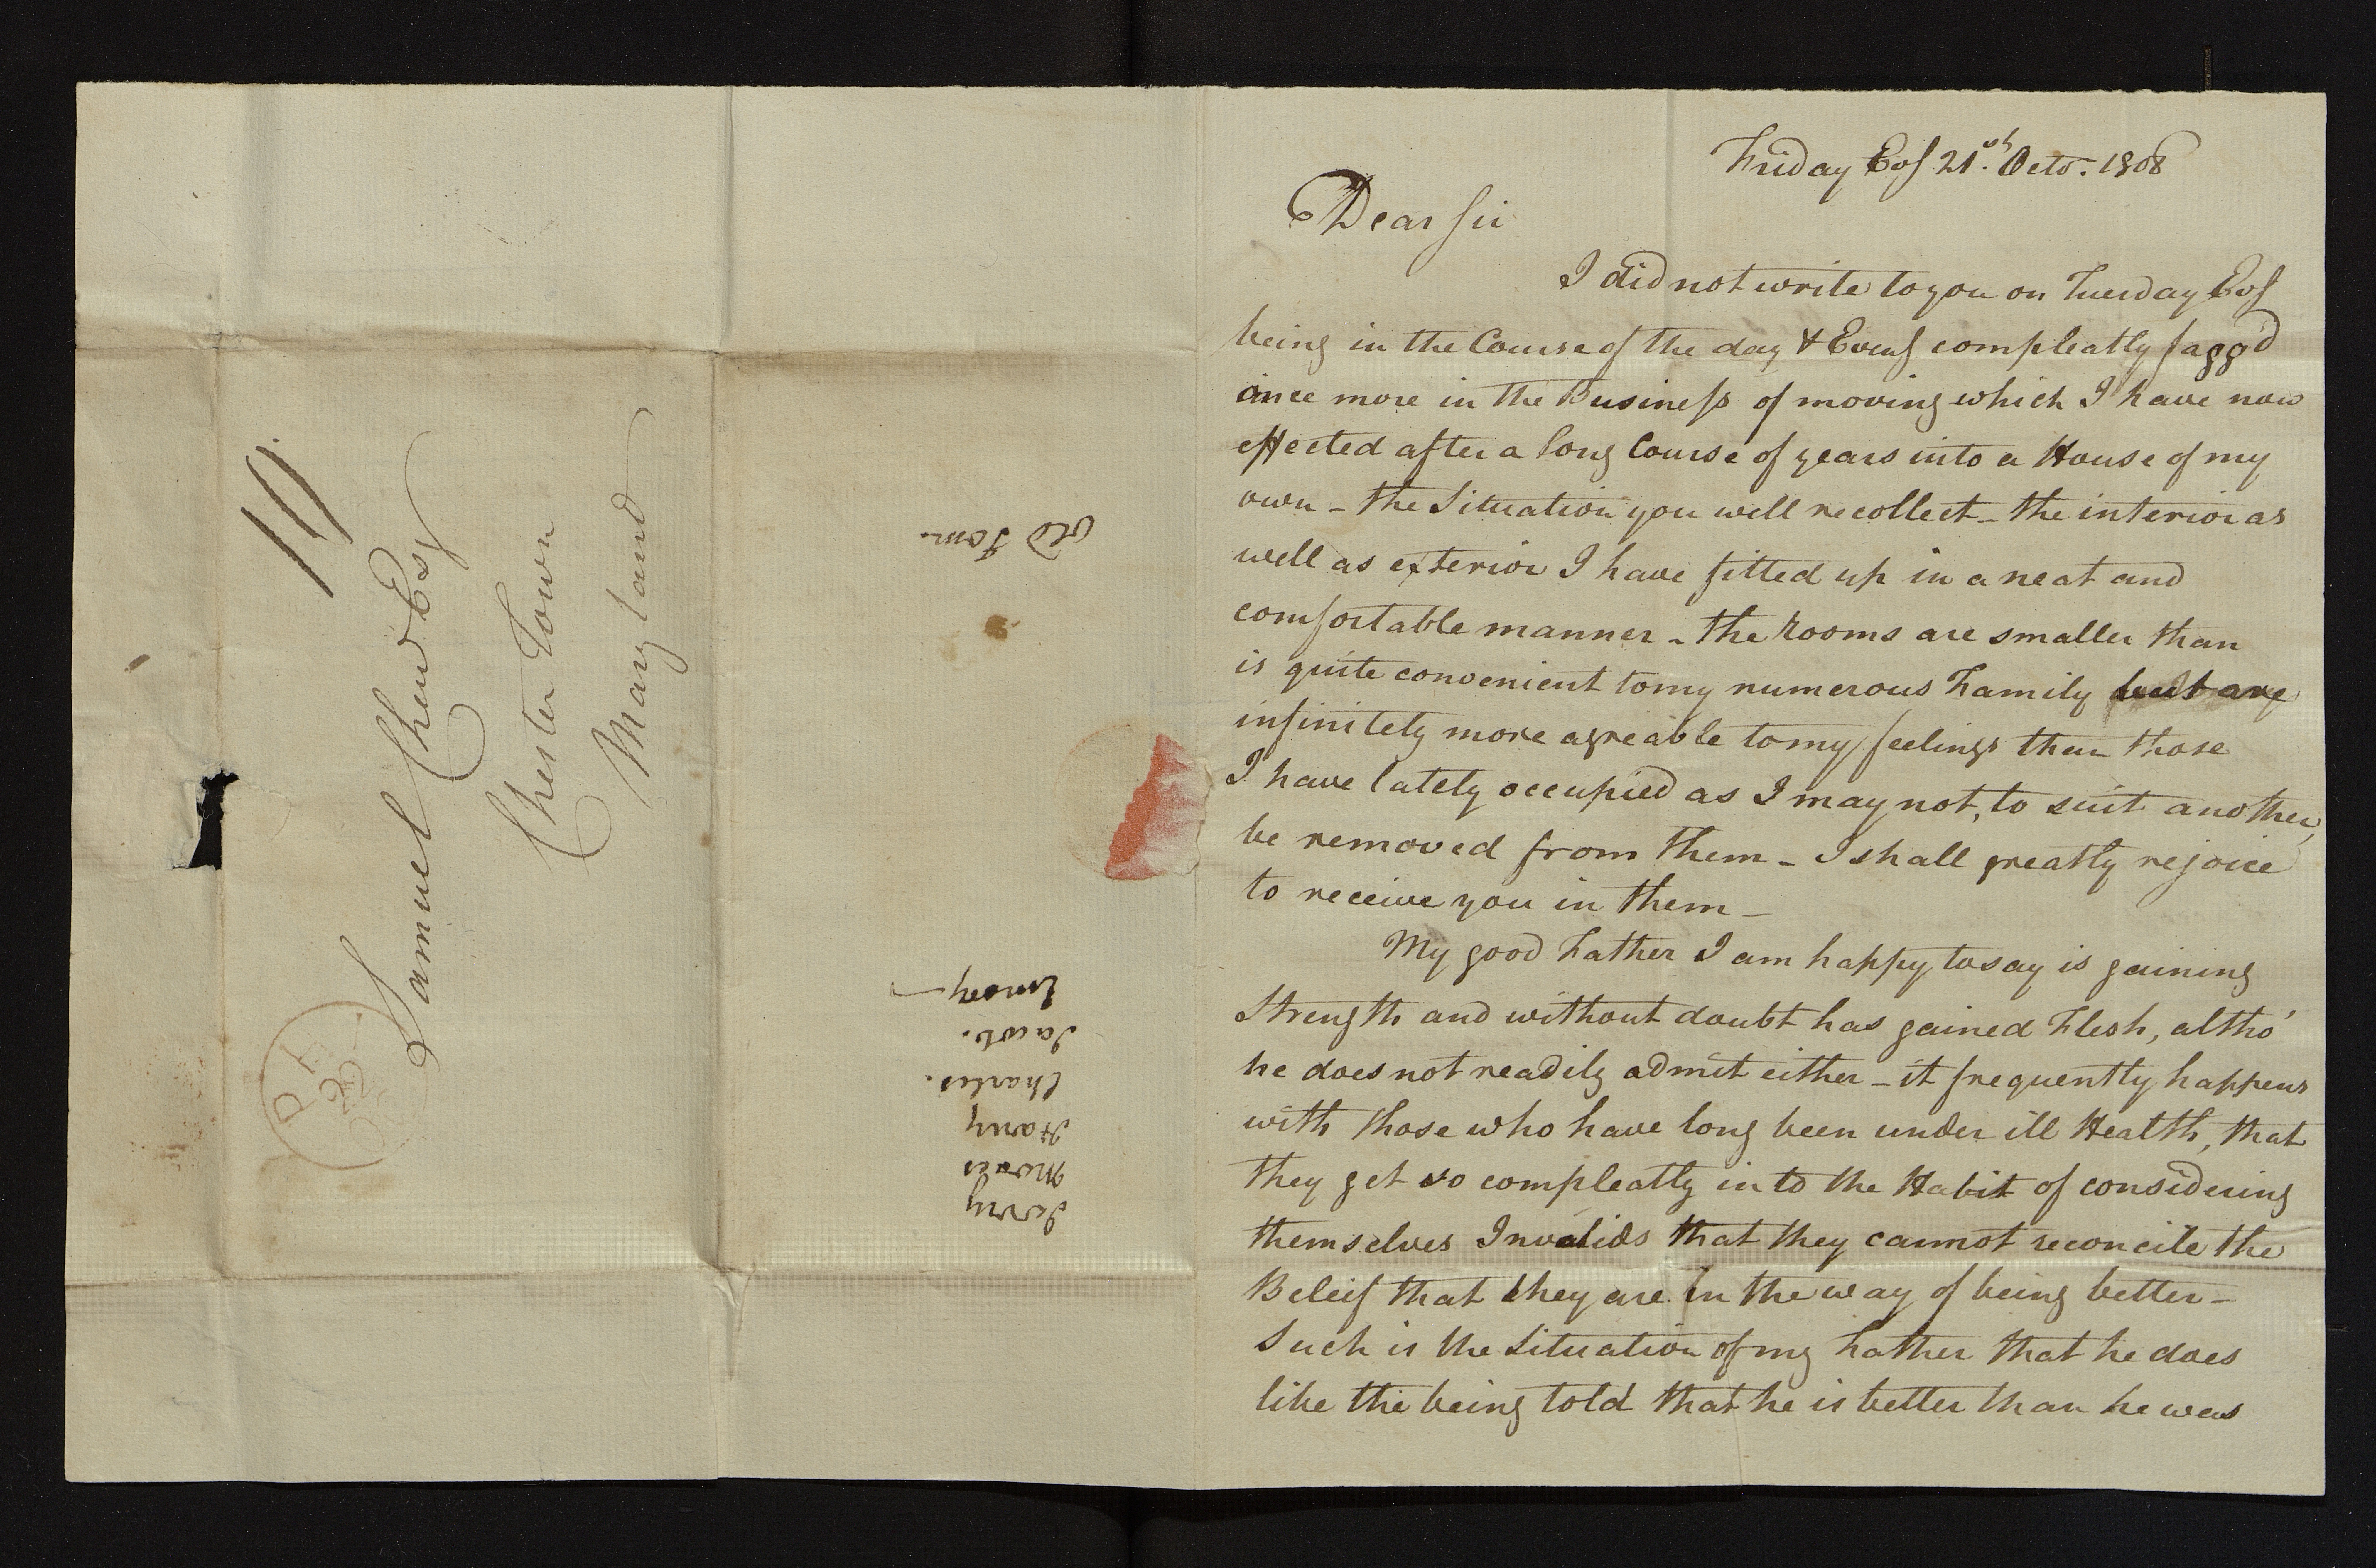 Friday Evg 21st. Octo. 1808
Dear Sir
I did not write to you on Tuesday Evg
being in the Course of the day & Eveng compleatly fagg'd
once more in the Business of moving which I have now
effected after a long Course of years into a House of my
own - the Situation you well recollect - the interior as
well as exterior I have fitted up in a neat and
comfortable manner - the Rooms are smaller than
is quite convenient to my numerous Family but are
infinitely more agreable to my feelings than those
I have lately occupied as I may not, to suit another,
be removed from them - I shall greatly rejoice
to receive you in them -
My good Father I am happy to say is gaining
Strength and without doubt has gained Flesh, altho'
he does not readily admit either - it frequently happens
with those who have long been under ill Health, that
they get so compleatly into the Habit of considering
themselves Invalids that they cannot reconcile the
Beleif that they are in the way of being better -
Such is the Situation of my Father that he does
like the being told that he is better than he was
Samuel Chew Esqr
Chester Town
Maryland
Old Tom.
Jerry
Moses
Harry
Charles.
Jacob.
Emory -